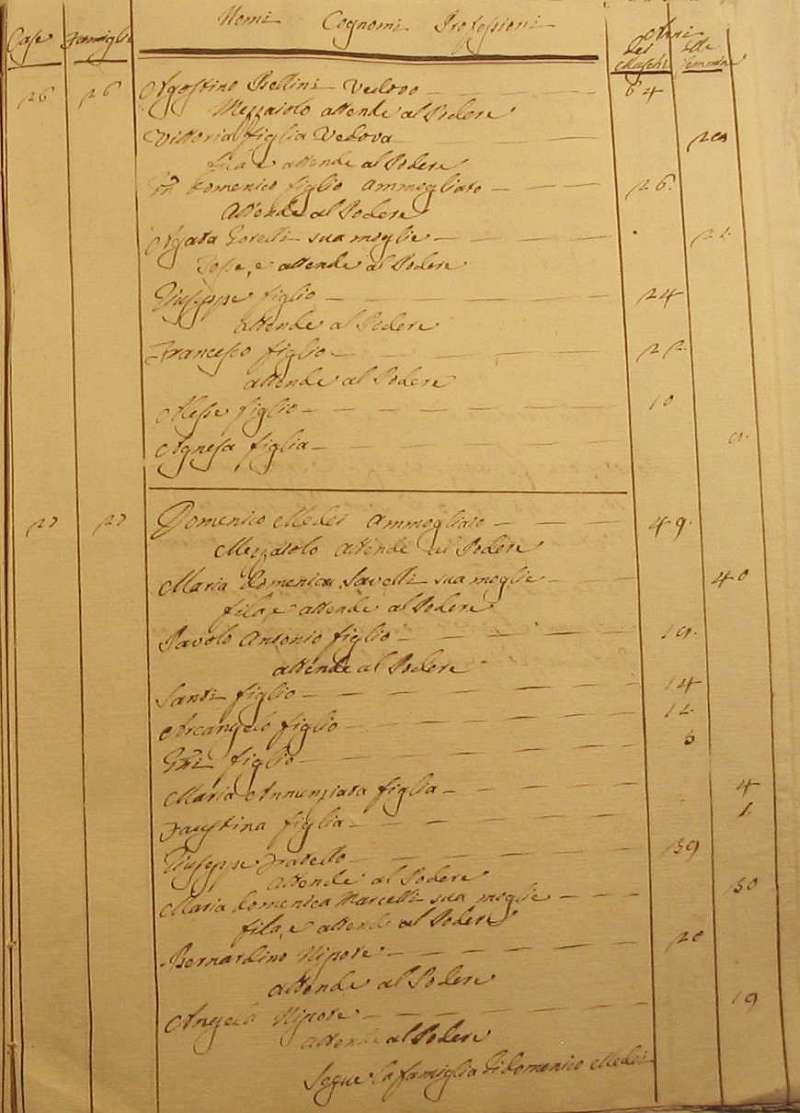 Case Famiglie Nomi Cognomi Professioni Anni
dei Maschi delle Femmine
26 26 Agostino Bellini Vedovo 64
Mezzaiolo attende al Podere
Vittoria figlia Vedova
fila e attende al Podere
Gio Domenico figlio ammogliato 26
Attende al Podere
Agata sua moglie
Tesse, e attende al Podere
Giuseppe figlio 24
attende al Podere
Francesco figlio
attende al Podere
figlio 10
Agnesa figlia
27 27 Domenico Medei Ammogliato 49.
Mezzaiolo attende al Podere
Maria Domenica Savelli sua moglie 40
fila, e attende al Podere
Pavolo Antonio figlio
attende al Podere
Santi figlio 14
Arcangelo figlio 12
figlio
Maria Annunziata figlia 4
Faustina figlia 1.
Giuseppe Fratello 59
attende al Podere
Maria Domenica Marcelli sua moglie 50
fila, e attende al Podere
Bernardino Nipote 20
attende al Podere
Nipote 19
attende al Podere
Segue la famiglia di Domenico Medei